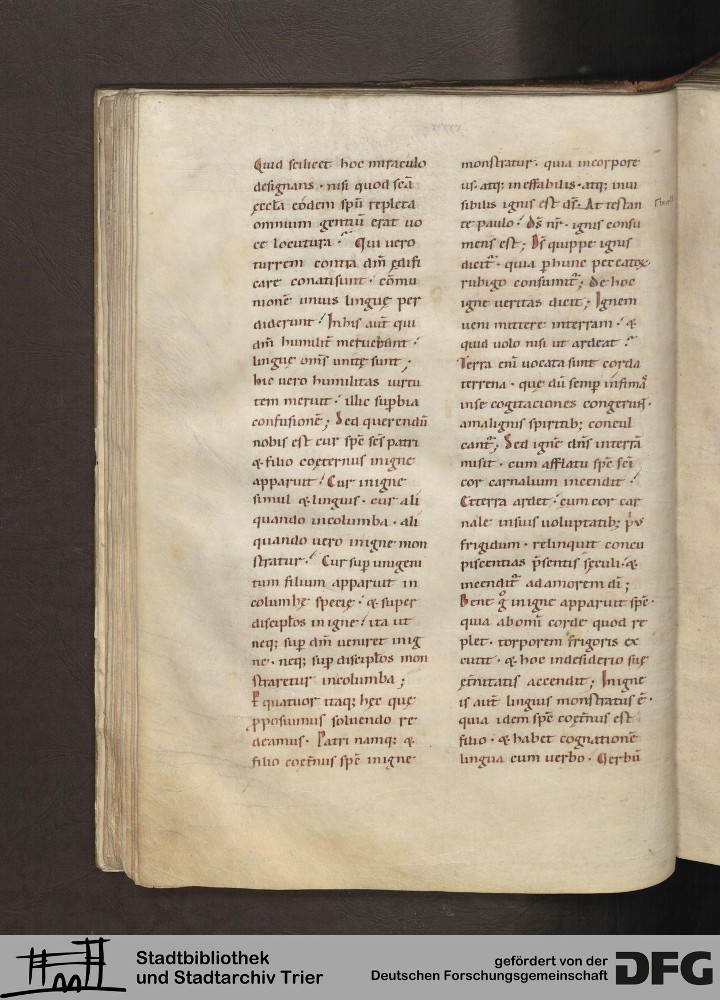 Quid scilicet hoc miraculo
designans · nisi quod scā
ęccła eódem spū repleta
omnium gentiū erat uo
ce locutura · Qui uero
turrem contra dm̄ ędifi
care conati sunt · cōmu
nionē unius linguę per
diderunt · In his aut̄ qui
dm̄ humilit̄ metuebant ·
linguę om̄s unitę sunt ;
hic uero humilitas uirtu
tem meruit · illic sup̄bia
confusionē ; Sed querendū
nobis est cur sp̄c sc̄s patri
& filio coęternus in igne
apparuit · Cur in igne
simul & linguis · cur ali
quando in columba · ali
quando uero in igne mon
stratur · Cur sup̄ unigeni
tum filium apparuit in
columbę specię · & super
discipłos in igne · ita ut
neq; sup̄ dm̄ ueniret in ig
ne · neq; sup̄ discipłos mon
straretur in columba ;
quatuor itaq; hęc que
p̱posuimus soluendo re
deamus · Patri namq; &
filio coet̄nus sp̄c in igne
monstratur · quia incorpore
us · atq; ineffabilis · atq; inui
sibilis ignis est d̄s · Attestan
te paulo · D̄s nr̄ · ignis consu
mens est ; D̄s quippe ignis
dicit᷑ · quia p̱ hunc peccatoꝝ
rubigo consumit᷑ ; De hoc
igne ueritas dicit ; Ignem
ueni mittere in terram · &
quid uolo nisi ut ardeat ·
Terra eni uocata sunt corda
terrena · que dū semp̄ infimas
in se cogitaciones congerunt ·
a malignis spiritib; concul
cant᷑ ; Sed ignē dn̄s in terrā
misit · cum afflatu sp̄c sc̄i
cor carnalium incendit ·
Et terra ardet · cum cor car
nale in suis uoluptatib; p̄uꝰ
frigidum · relinquit concu
piscentias p̄sentis sęculi · &
incendit᷑ ad amorem dī ;
Bene g̊ in igne apparuit sp̄c ·
quia ab omī corde quod re
plet · torporem frigoris ex
cutit · & hoc in desiderio suę
ęt̄nitatis accendit ; In igne
is aut̄ linguis monstratus ē ·
quia idem sp̄c coet̄nus est
filio · & habet cognationē
lingua cum uerbo · Uerbū
Stadtbibliothek
und Stadtarchiv Trier
gefördert von der
Deutschen Forschungsgemeinschaft
DFG